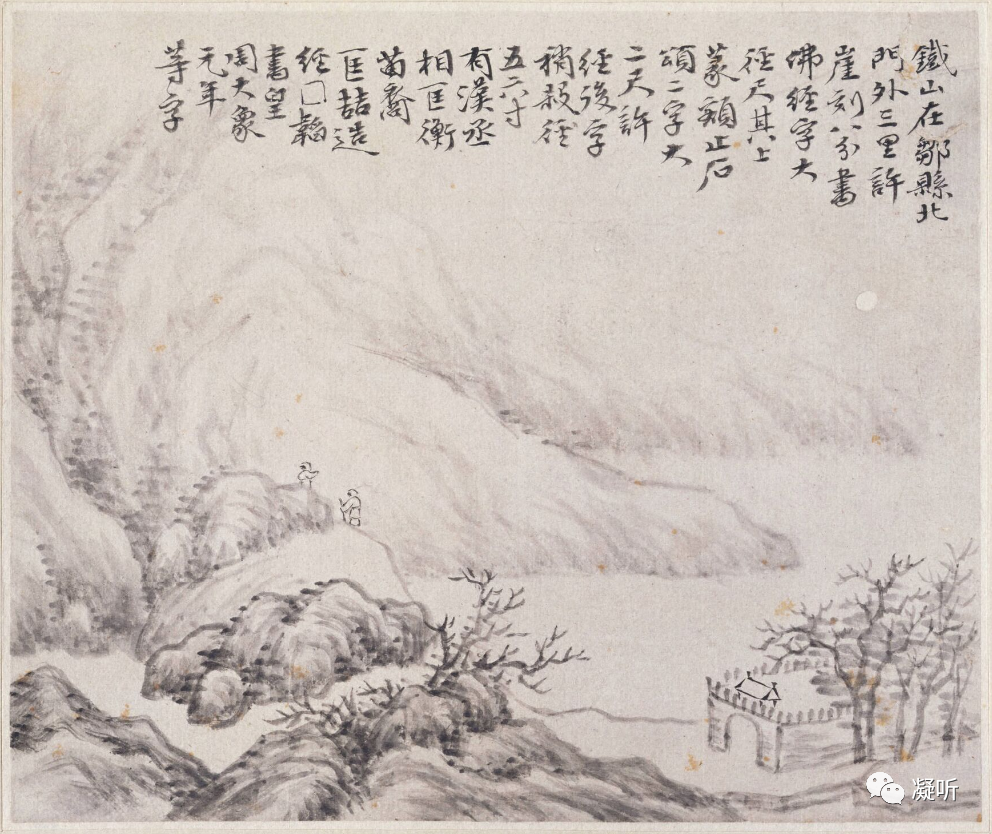 鐵山在鄒縣北
門外三里許
崖刻八分書
佛經字大
徑尺其上
篆額止石
頌二字大
二尺許
經後字
稍殺徑
五六寸
有漢丞
相匡衡
苗裔
匡喆造
經囗韜
書皇
周大象
元年
等字
凝听